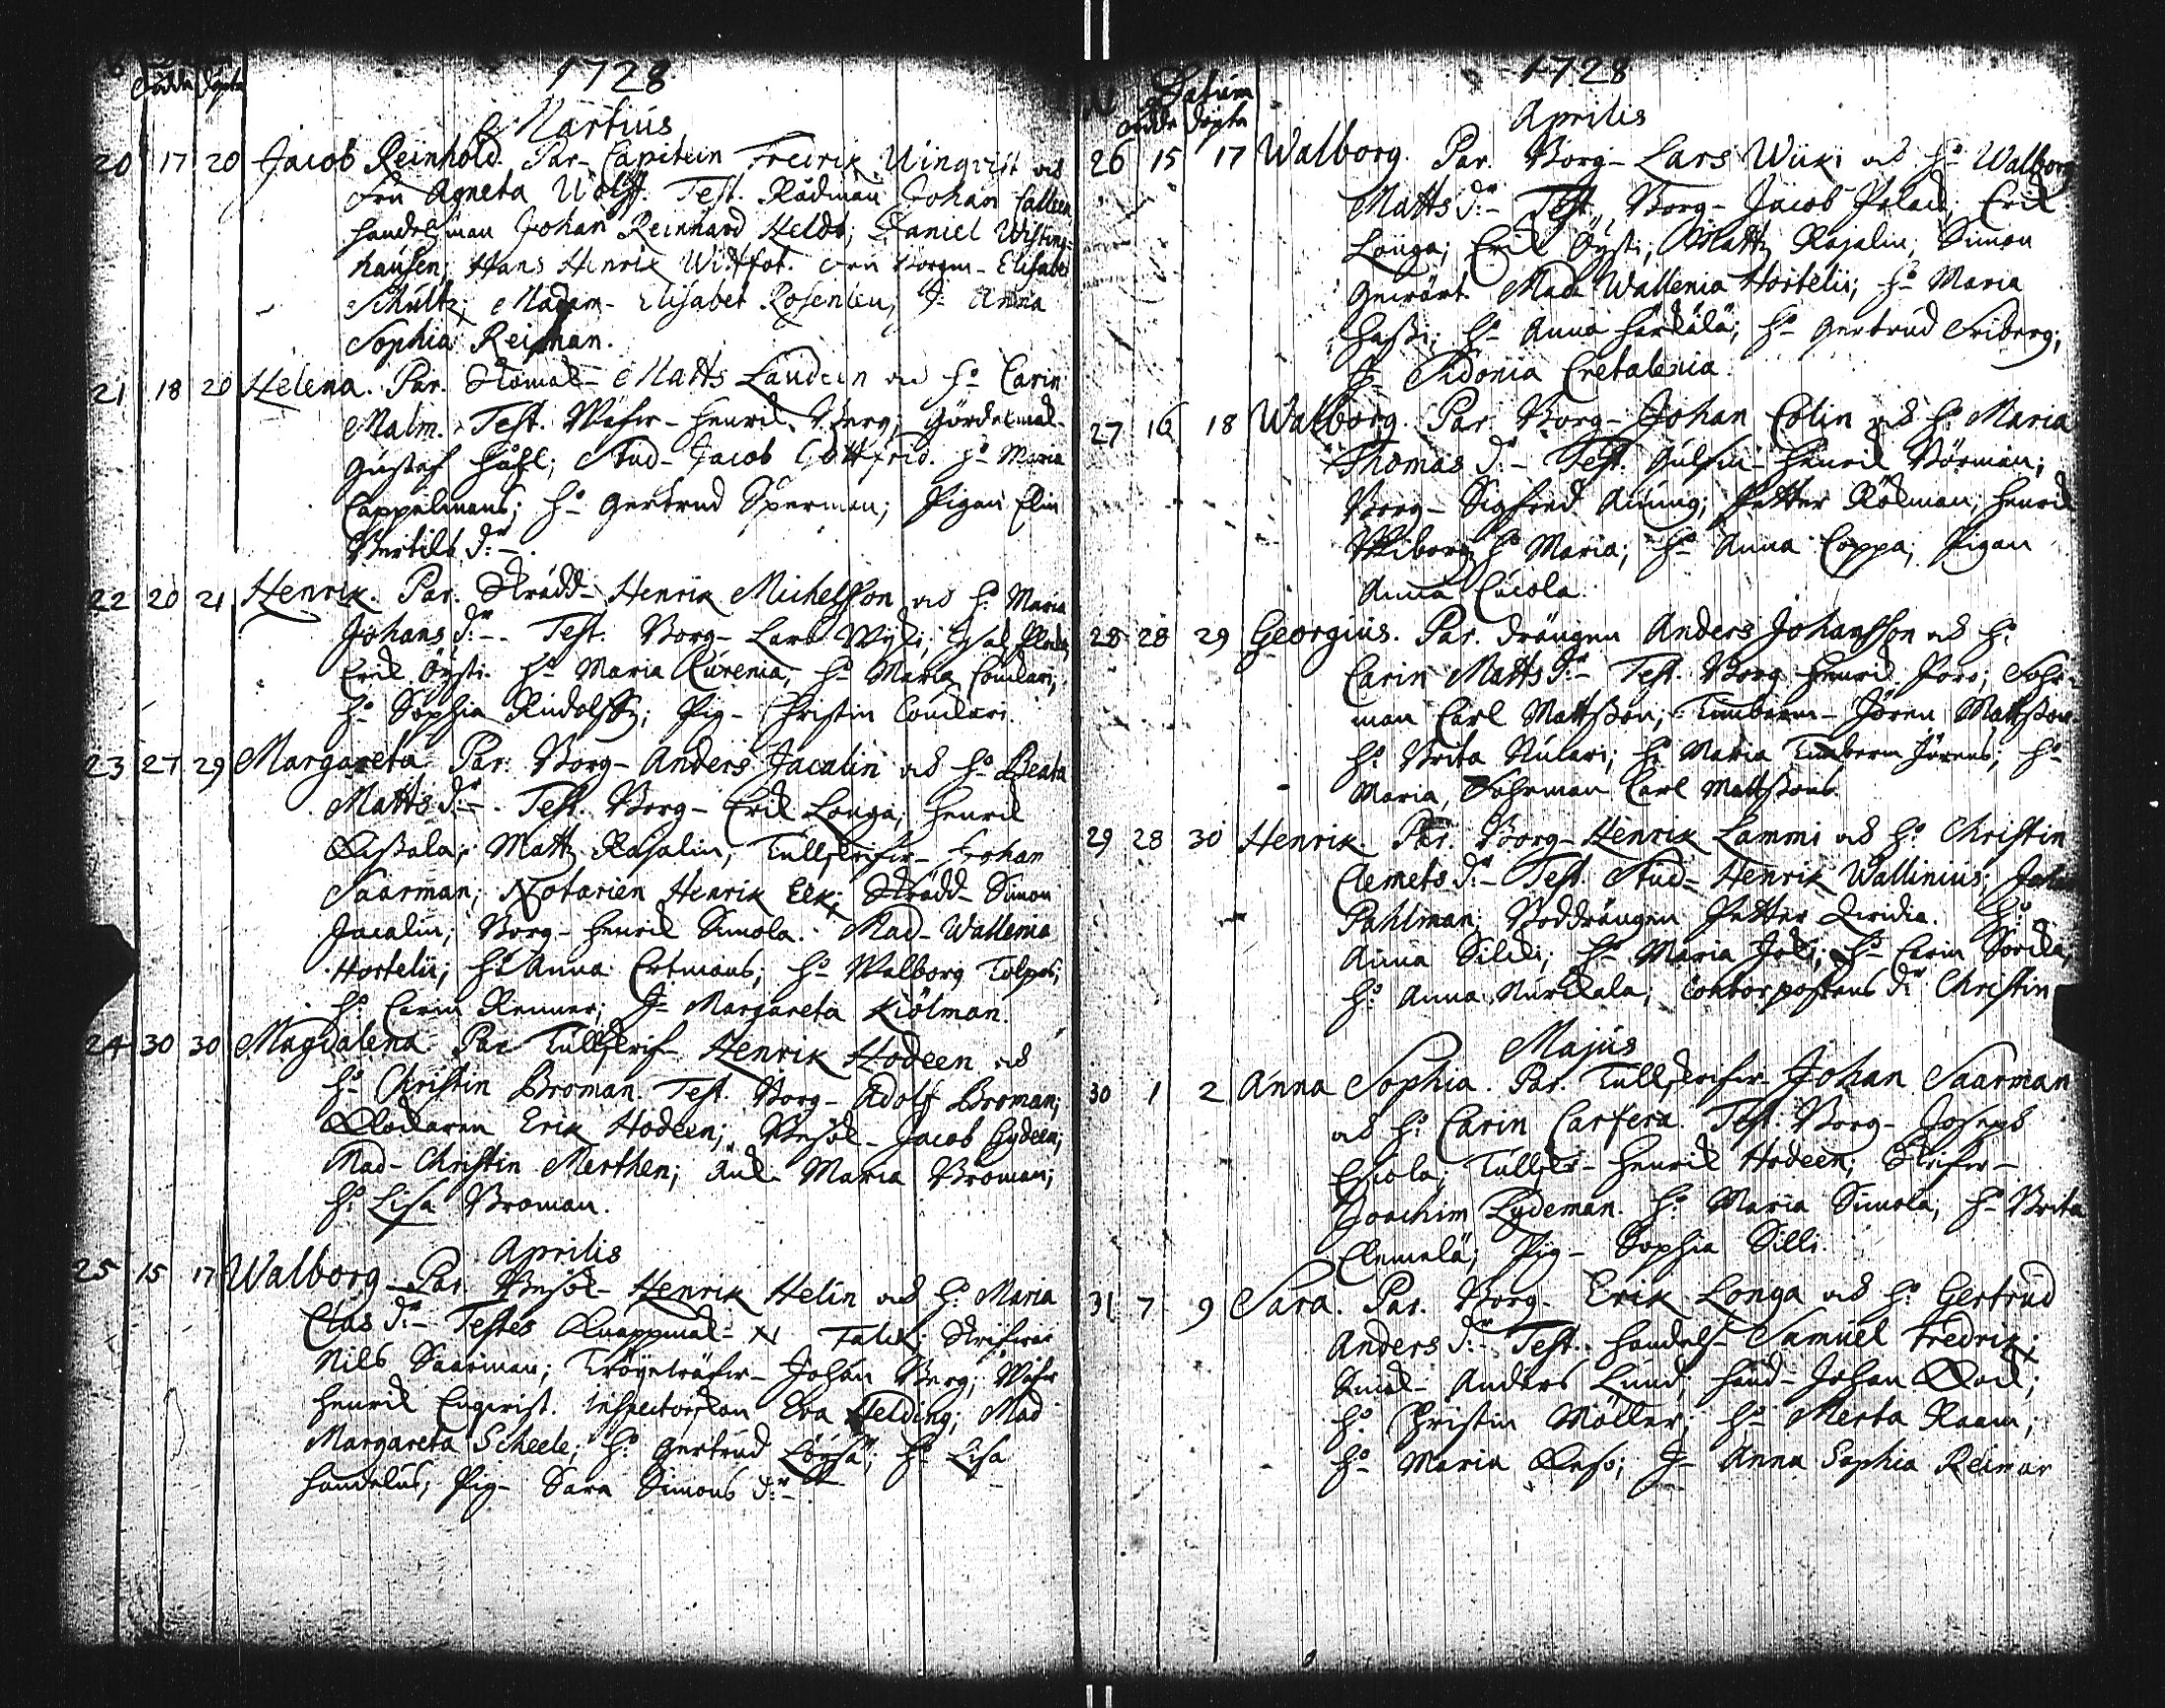 födde döpte
1728
Martius
20 17 20 Jacob Reinhold. Par- Capitein Fredrik Winqvist ock
Fru Agneta Wolff. Test. Rådman Johan Calleen
handelsman Johan Reinhard Heldt; Daniel Wisting-
hausen; Hans Henrik Widtfot. Fru Borgm- Elisabet
Schultz; Madam- Elisabet Rosenleu; J- Anna
Sophia Reiman.
21 18 20 Helena. Par. Skomak- Matts Laudein ock h- Carin
Malm. Test. Wäfw- Henrik Berg; Gördelmak-
Gustaf Håhl; Stud- Jacob Gottfrid. h- Maria
Cappelmans; h- Gertrud Sperman; Pigan Elin
Bertils d:r-
22 20 21 Henrik. Par. Skrädd- Henrik Michelsson ock h. Maria
Johans d:r-. Test. Borg- Lars Wijki;
Erik Öysti. h- Maria Curenia; h- Maria
h- Sophia Rudolphs; Pig- Christin
23 27 29 Margareta Par: Borg- Anders Jacalin ock h- Beata
Matts d:r-. Test. Borg- Erik Longa; Henrik
Matts Rajalin; Tullskrifw- Johan
Saarman; Notarien Henrik Elk; Skrädd- Simon
Jacalin; Borg- Henrik Simola. Mad- Wallenia
Hortelii; h- Anna Ertmans; h- Walborg Tolpos;
h. Carin Renner; J- Margareta Kiölman.
24 30 30 Magdalena Par Tullskrif- Henrik Hodeen ock
h- Christin Broman Test. Borg- Adolf Broman;
Klockaren Erik Hodeen; Besök- Jacob Gydeen;
Mad- Christin Merthen; Änk- Maria Broman;
h. Lisa Broman.
Aprilis
25 15 17 Walborg Par. Besök- Henrik Helin ock h. Maria
Clas d:r- Testes Knappmak- N Falck; Skrifwar
Nils Saarman; Johan Berg; Wäfw
Henrik Enqvist. Inspectorskan Eva Felding; Mad
Margareta Scheele; h. Gertrud h- Lisa
Pig- Sara Simons d:r-
1728
N Datum
födde döpte
Aprilis
26 15 17 Walborg. Par. Borg- Lars Wiiki ock h- Walborg
Matts d:r- Test. Borg- Jacob Erik
Longa; Erik Öysti; Matts Rajalin; Simon
Mad- Wallenia Hortelii; h- Maria
h- Anna Härkälä; h- Gertrud Friberg;
J- Sidonia Cretalenia.
27 16 18 Walborg. Par. Borg- Johan Colin ock h. Maria
Thomas d:r- Test. Gulsm- Henrik Börman;
Borg- Sigfred Petter Kölman; Henrik
Wiborg h- Maria; h- Anna Coppa; Pigan
Anna
28 28 29 Georgius. Par. drängen Anders Johansson ock h.
Carin Matts d:r- Test. Borg Henrik Poro; Fohr-
man Carl Mattsson; Timberm- Jören Mattsson
h. Brita h. Maria Timberm Jörens; h-
Maria, Fohrman Carl Mattssons.
29 28 30 Henrik. Par. Borg- Henrik Lammi ock h. Christin
Clemets d:r- Test. Stud- Henrik Wallinius; Johan
Pahlman; Boddrängen Petter h.
Anna h- Maria h- Carin
h. Anna Christin
Majus
30 1 2 Anna Sophia. Par. Tullskrifw- Johan Saarman
ock h. Carin Test. Borg- Joseph
Tullskr- Henrik Hodeen; Skrifw-
Joachim Lydeman. h. Maria Simola; h- Brita
Pig- Sophia Silli.
31 7 9 Sara. Par. Borg- Erik Longa ock h. Gertrud
Anders d:r- Test. handels- Samuel Fredrik;
Anders Lund; hand- Johan
h. Christin Möller; h- Merta
h- Maria J- Anna Sophia Reimar